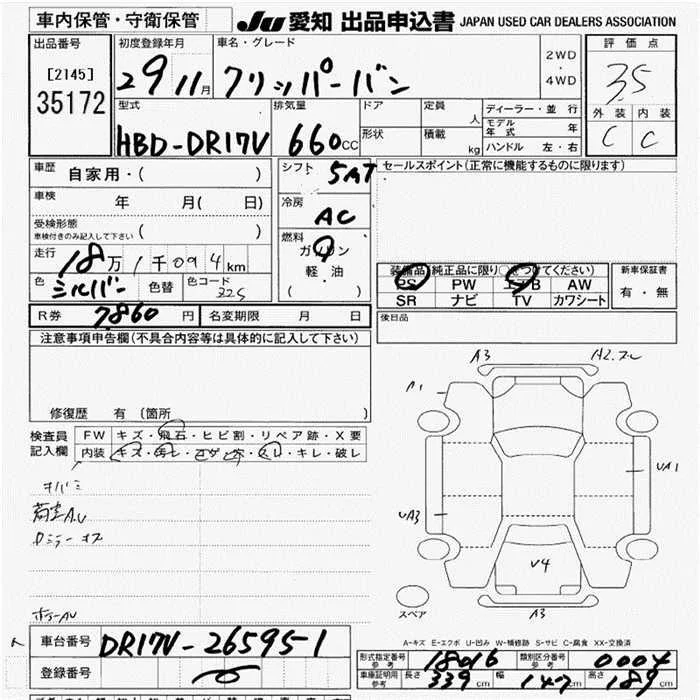 車内保管・守衛保管
JU 愛知 出品申込書 JAPAN USED CAR DEALERS ASSOCIATION
出品番号
[2145]
35172
初度登録年月
29 11月
車名・グレード
クリッパーバン
2WD
・
4WD
評価点
3.5
外装 内装
C C
型式
HBD-DR17V
排気量
660cc
ドア
形状
定員 人
積載 kg
ディーラー・並行
モデル年式 年
ハンドル 左・右
車歴 自家用・( )
車検 年 月( 日)
受検形態
車検付きのみ記入して下さい ( )
走行 18万1千094km
色 シルバー 色替 色コード 225
シフト 5AT
冷房 AC
燃料
ガソリン
軽・油
( )
セールスポイント(正常に機能するものに限ります)
装備品(純正品に限り○をつけてください)
PS PW エアB AW
SR ナビ TV カワシート
新車保証書
有・無
R券 7860円 名変期限 月 日
後日品
注意事項申告欄(不具合内容等は具体的に記入して下さい)
修復歴 有 (箇所 )
検査員
記入欄
FW キズ・飛石・ヒビ割・リペア跡・X要
内装 キズ・汚レ・コゲ・穴・スレ・キレ・破レ
荷室A.U
ボデーAU
A3
A1
UA1
UA3
U4
A3
スペア
A-キズ E-エクボ U-凹み W-補修跡 S-サビ C-腐食 XX-交換済
車台番号 DR17V-265951
登録番号
形式指定番号 参考 18016 類別区分番号 参考 0004
車庫証明用 参考 長さ 339cm 幅 147cm 高さ 189cm